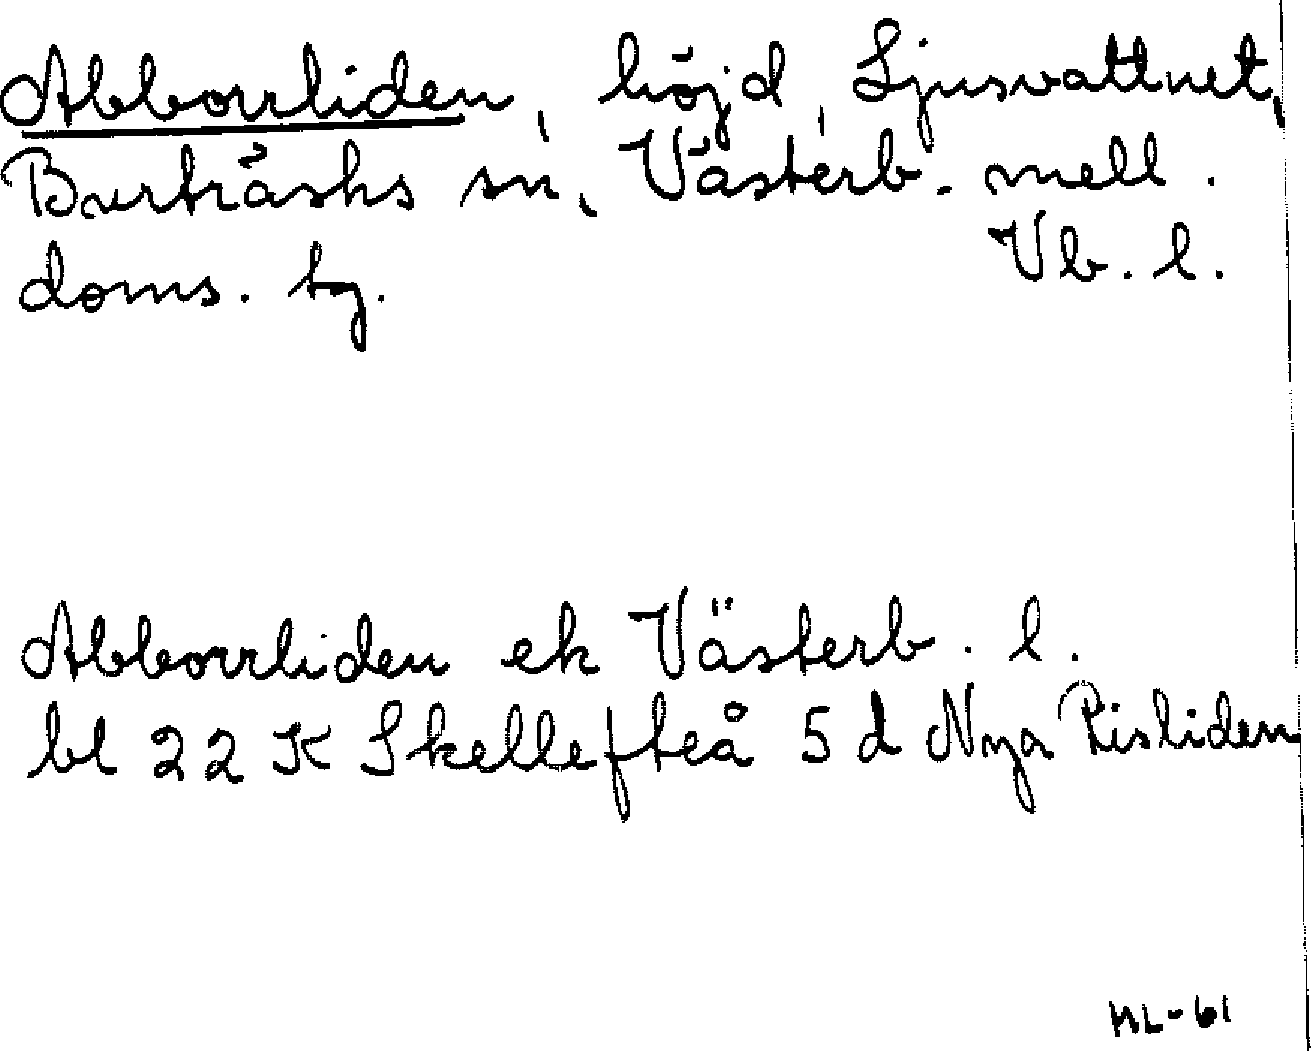 Abborrliden, höjd, Ljusvattnet,
Burträsks sn, Västerb. mell.
doms. tg. Vb. l.
Abborrliden ek Västerb. l.
bl 22 K Skellefteå 5 d Nya Risliden
ML-61